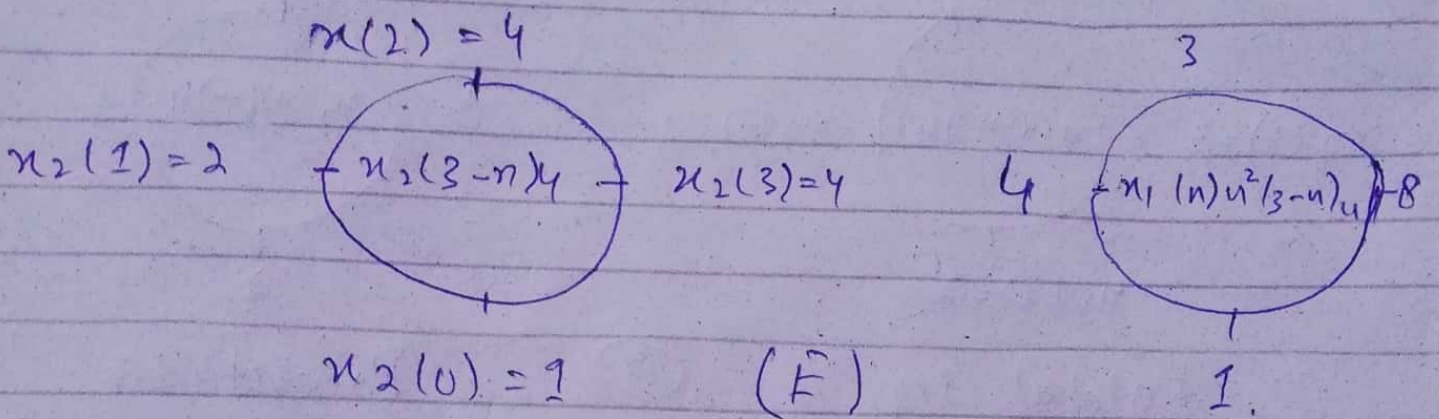 x(2) = 4
3
x2(1) = 2
x2(3-n)4
x2(3)=4
4
x1(n)x2(3-n)4
8
x2(0) = 1
(E)
1.